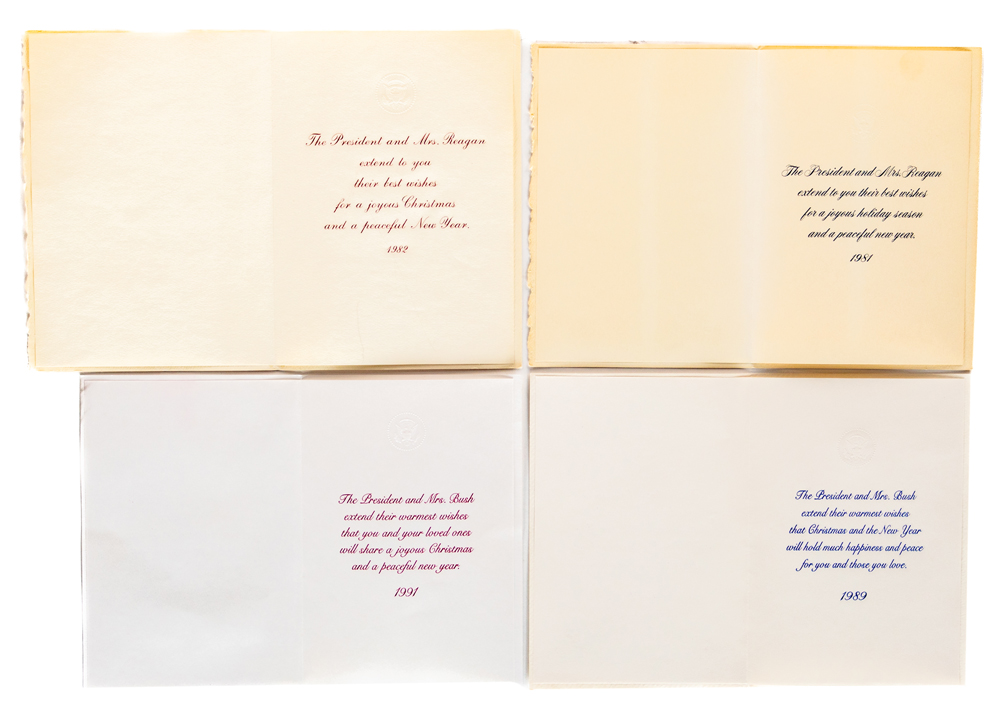 The President and Mrs. Reagan
extend to you
their best wishes
for a joyous Christmas
and a peaceful New Year.
1982
The President and Mrs. Reagan
extend to you their best wishes
for a joyous holiday season
and a peaceful new year.
1981
The President and Mrs. Bush
extend their warmest wishes
that you and your loved ones
will share a joyous Christmas
and a peaceful new year.
1991
The President and Mrs. Bush
extend their warmest wishes
that Christmas and the New Year
will hold much happiness and peace
for you and those you love.
1989